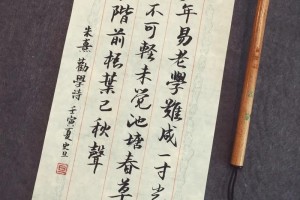 年易老學難成一寸光
不可輕未覺池塘春草
階前梧葉已秋聲
朱熹勸學詩壬寅夏史旦